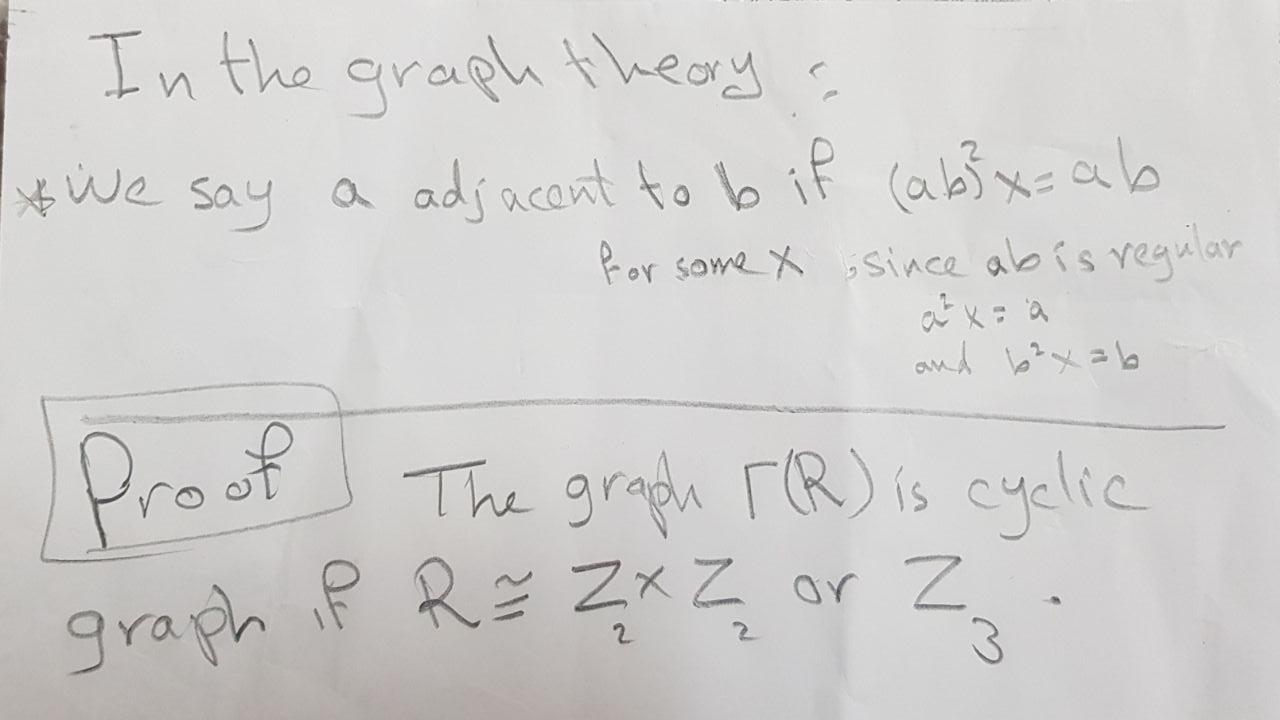 In the graph theory :
* We say a adjacent to b if (ab)²x = ab
for some x ; since ab is regular
a²x = a
and b²x = b
Proof The graph Γ(R) is cyclic
graph if R ≅ Z₂ × Z₂ or Z₃ .